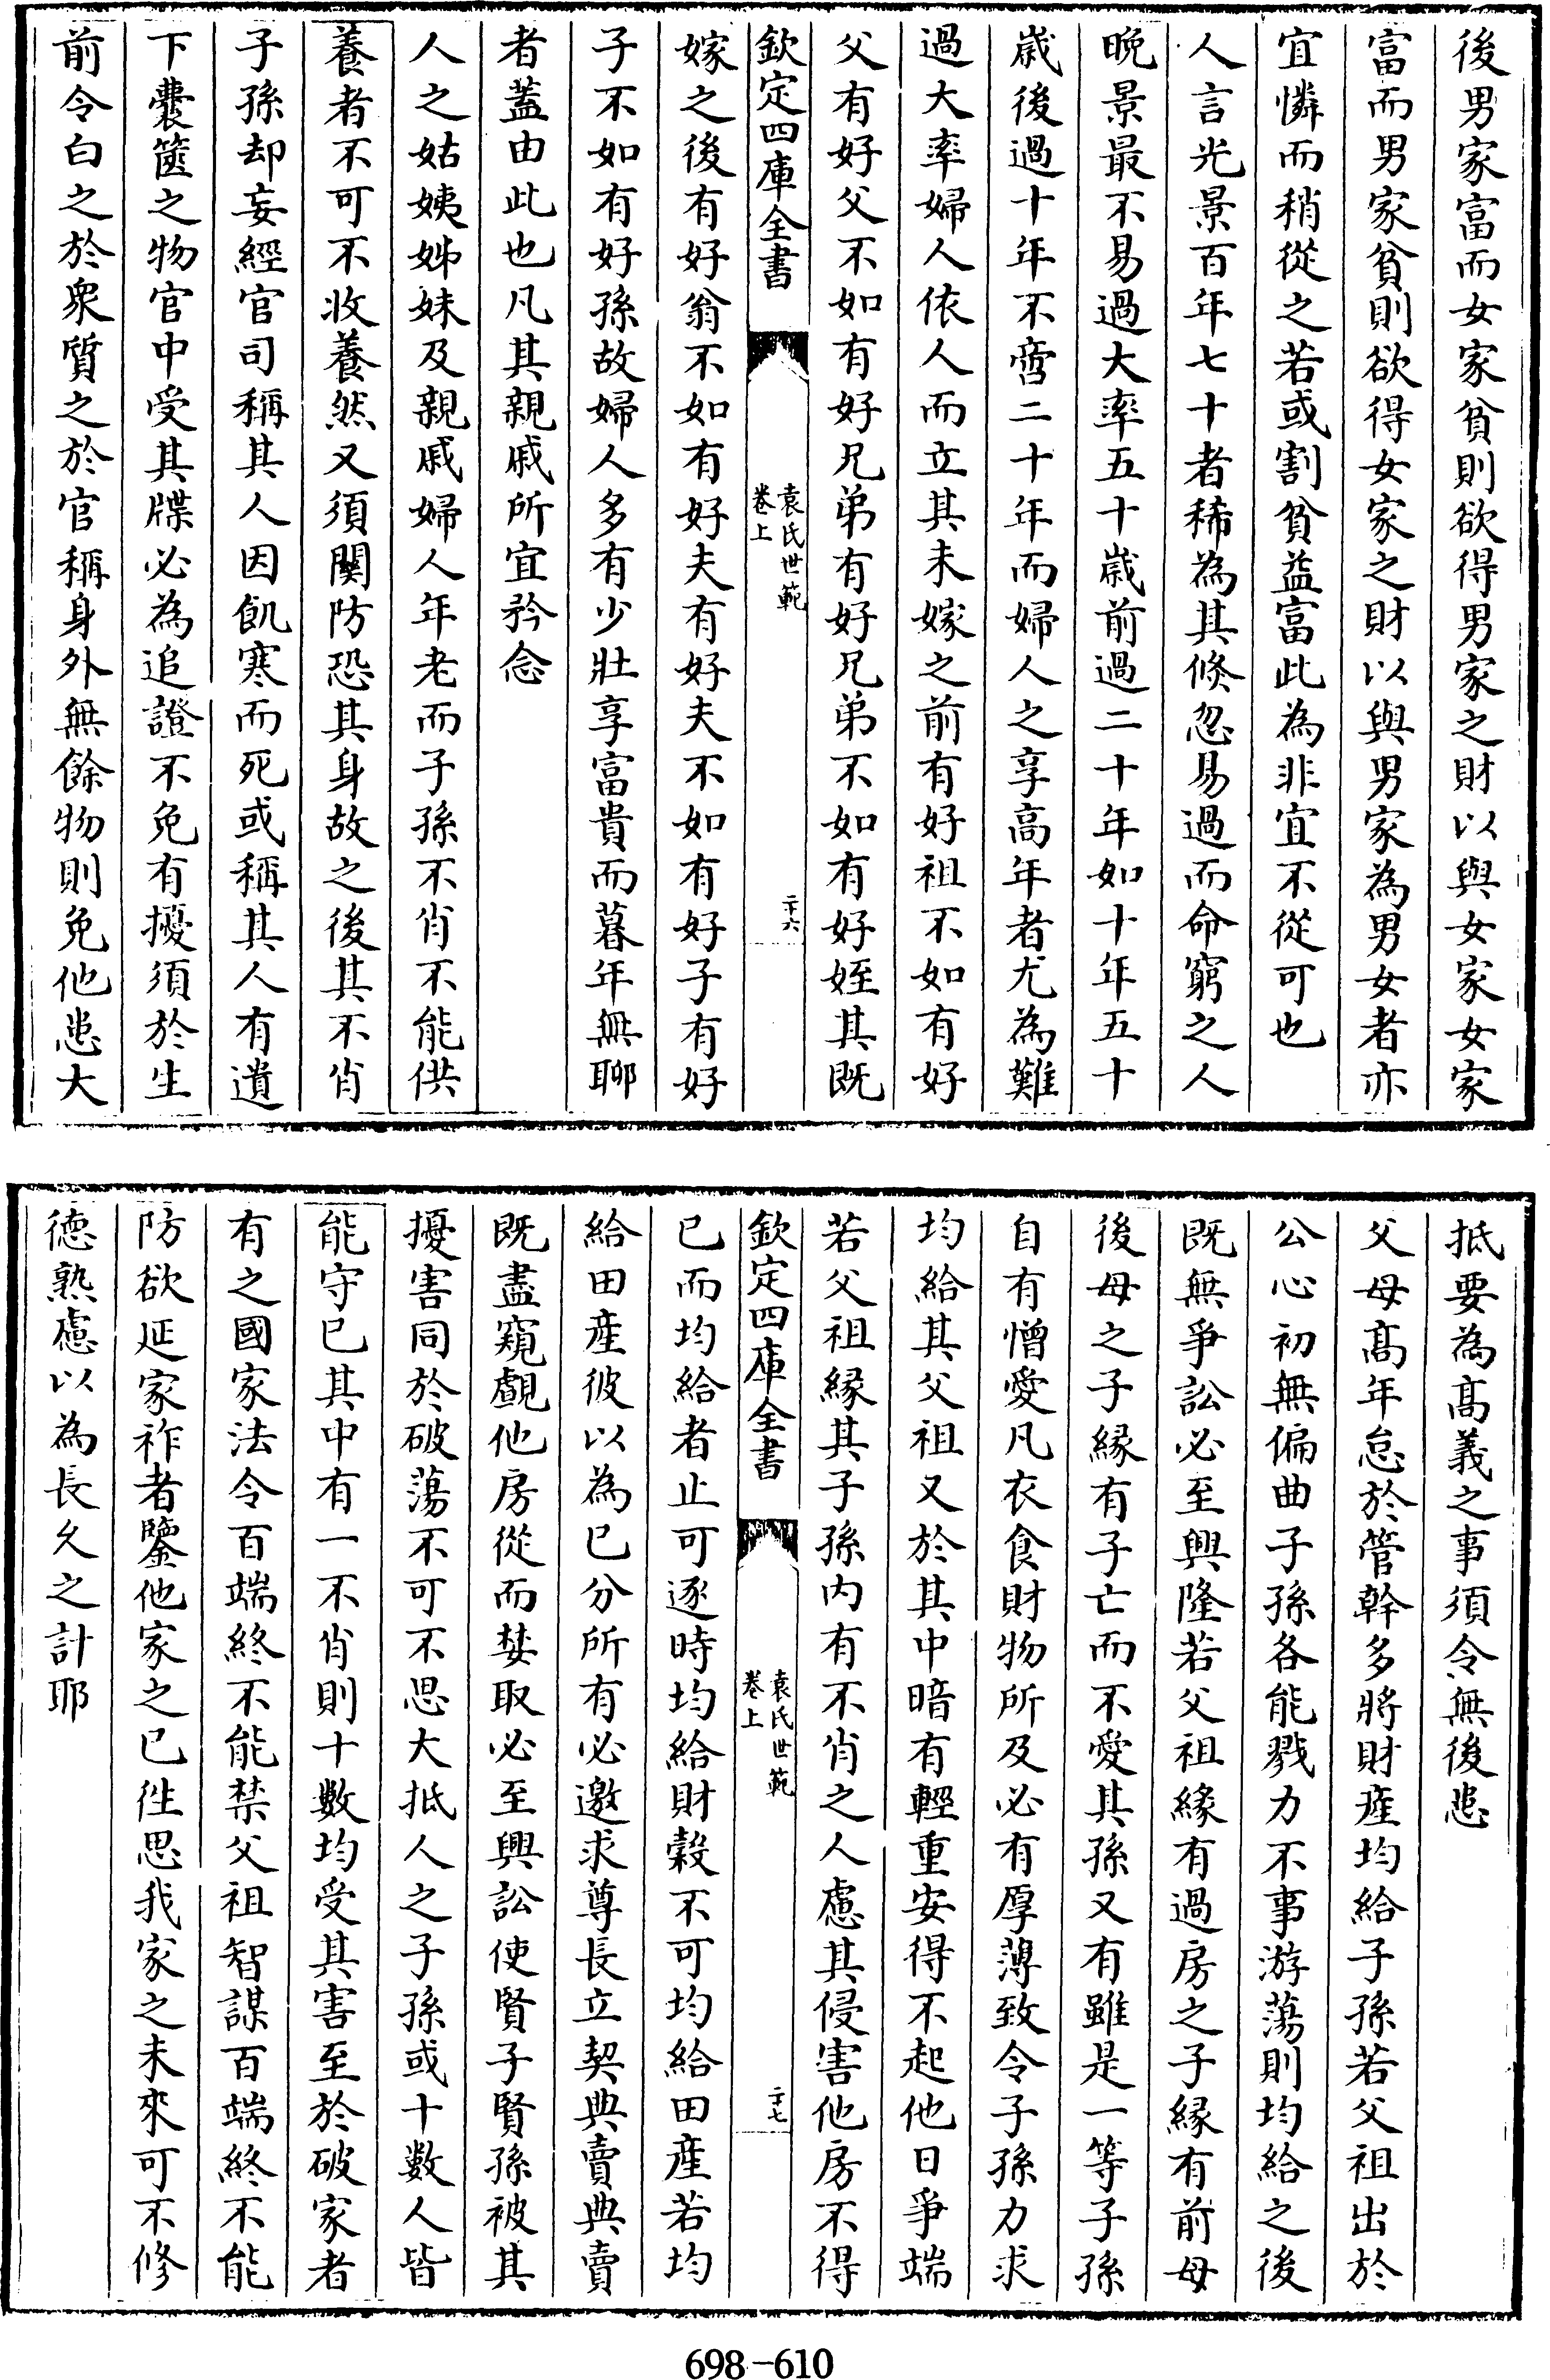 後男家富而女家貧則欲得男家之財以與女家女家
富而男家貧則欲得女家之財以與男家為男女者亦
宜憐而稍從之若或割貧益富此為非宜不從可也
人言光景百年七十者稀為其倐忽易過而命窮之人
晩景最不易過大率五十歳前過二十年如十年五十
歳後過十年不啻二十年而婦人之享高年者尤為難
過大率婦人依人而立其未嫁之前有好祖不如有好
父有好父不如有好兄弟有好兄弟不如有好姪其既
欽定四庫全書
袁氏世範
卷上
二十六
嫁之後有好翁不如有好夫有好夫不如有好子有好
子不如有好孫故婦人多有少壯享富貴而暮年無聊
者蓋由此也凡其親戚所宜矜念
人之姑姨姊妹及親戚婦人年老而子孫不肖不能供
養者不可不收養然又須關防恐其身故之後其不肖
子孫却妄經官司稱其人因飢寒而死或稱其人有遺
下囊篋之物官中受其牒必為追證不免有擾須於生
前令白之於衆質之於官稱身外無餘物則免他患大
抵要為髙義之事須令無後患
父母髙年怠於管幹多將財産均給子孫若父祖出於
公心初無偏曲子孫各能戮力不事游蕩則均給之後
既無爭訟必至興隆若父祖緣有過房之子縁有前母
後母之子縁有子亡而不愛其孫又有雖是一等子孫
自有憎愛凡衣食財物所及必有厚薄致令子孫力求
均給其父祖又於其中暗有輕重安得不起他日爭端
若父祖縁其子孫内有不肖之人慮其侵害他房不得
欽定四庫全書
袁氏世範
卷上
二十七
已而均給者止可逐時均給財穀不可均給田産若均
給田産彼以為已分所有必邀求尊長立契典賣典賣
既盡窺覷他房從而婪取必至興訟使賢子賢孫被其
擾害同於破蕩不可不思大抵人之子孫或十數人皆
能守已其中有一不肖則十數均受其害至於破家者
有之國家法令百端終不能禁父祖智謀百端終不能
防欲延家祚者鑒他家之已徃思我家之未來可不修
徳熟慮以為長久之計耶
698-610